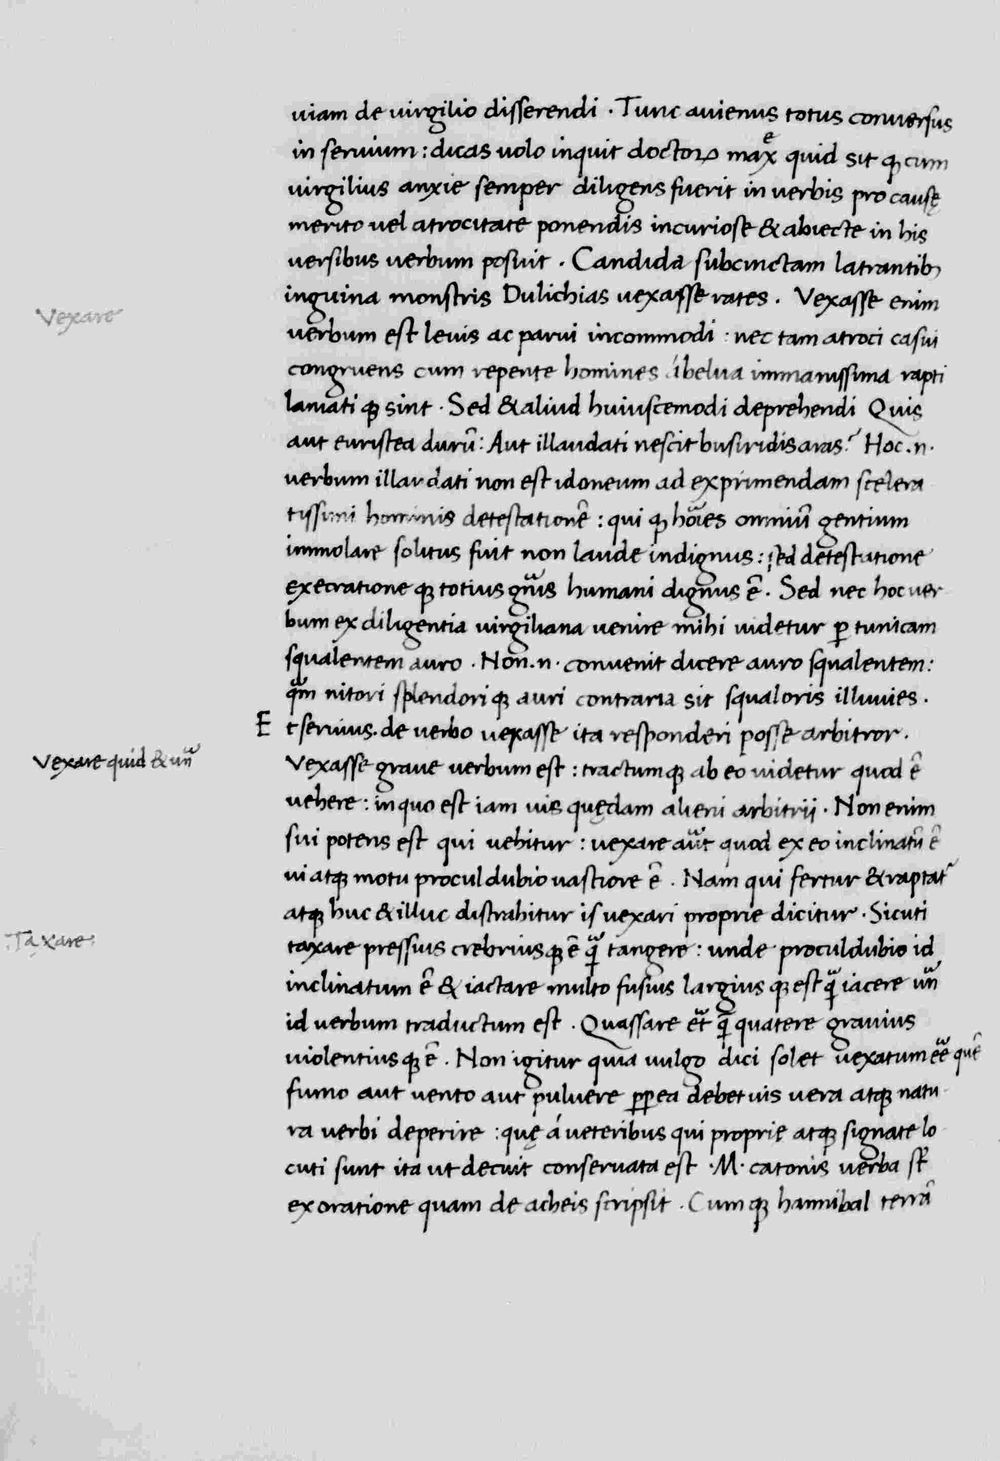 uiam de uirgilio disserendi . Tunc auienus totus conuersus
in seruium : dicas uolo inquit doctorꝝ maxͤ quid sit ꝙ cum
uirgilius anxie semper diligens fuerit in uerbis pro causę
merito uel atrocitate ponendis incuriose & abiecte in his
uersibus uerbum posuit . Candida subcinctam latrantibꝫ
inguina monstris Dulichias uexasse rates . Vexasse enim
Vexare
uerbum est leuis ac parui incommodi : nec tam atroci casui
congruens cum repente homines á belua immanissima rapti
laniati qꝫ sint . Sed & aliud huiuscemodi deprehendi Quis
aut euristea durũ : Aut illaudati nescit busiridis aras? Hoc .n.
uerbum illaudati non est idoneum ad exprimendam scelera
tissimi hominis detestationẽ : qui ꝙ hoı̃es omniũ gentium
immolare solitus fuit non laude indignus : sed detestatione
execratione qꝫ totius gñis humani dignus ẽ . Sed nec hoc uer
bum ex diligentia uirgiliana uenire mihi uidetur ꝑ tunicam
squalentem auro . Non .n. conuenit dicere auro squalentem :
qm̃ nitori splendori qꝫ auri contraria sit squaloris illuuies .
E t seruius . de uerbo uexasse ita responderi posse arbitror .
Vexare quid & uñ
Vexasse graue uerbum est : tractumqꝫ ab eo uidetur quod ẽ
uehere : in quo est iam uis quędam alieni arbitrii . Non enim
sui potens est qui uehitur : uexare aũt quod ex eo inclinatũ ẽ
ui atqꝫ motu procul dubio uastiore ẽ . Nam qui fertur & raptat᷑
atqꝫ huc & illuc distrahitur is uexari proprie dicitur . Sicuti
Taxare
taxare pressius crebriusqꝫ ẽ q̃ tangere : unde procul dubio id
inclinatum ẽ & iactare multo fusius largius qꝫ est q̃ iacere uñ
id uerbum traductum est . Quassare et̃ q̃ quatere grauius
uiolentiusqꝫ ẽ . Non igitur quia uulgo dici solet uexatum ẽe quẽ
fumo aut uento aut puluere ꝓpea debet uis uera atqꝫ natu
ra uerbi deperire : quę á ueteribus qui proprie atqꝫ signate lo
cuti sunt ita ut decuit conseruata est . M. catonis uerba st̃
ex oratione quam de acheis scripsit . Cum qꝫ hannibal terrã